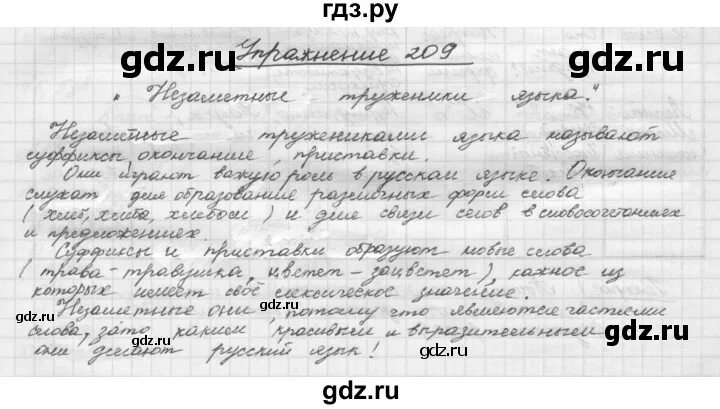 гдз.ру
Упражнение 209
gdz.ru gdz.ru
„Незаметные труженики языка."
Незаметные тружениками языка называют
суффиксы, окончание, приставки.
Они играют важную роль в русском языке. Окончание
служат для образование различных форм слова
(хлеб, хлеба, хлебом) и для связи слов в словосочетаниях
и предложениях.
gdz.ru gdz.ru
Суффиксы и приставки образуют новые слова
(трава - травушка, цветет - зацветет), каждое из
которых имеет своё лексическое значение.
gdz.ru
Незаметные они, потому что являются частями
gdz.ru
слова, зато каким красивым и выразительным
они делают русский язык!
gdz.ru gdz.ru
gdz.ru